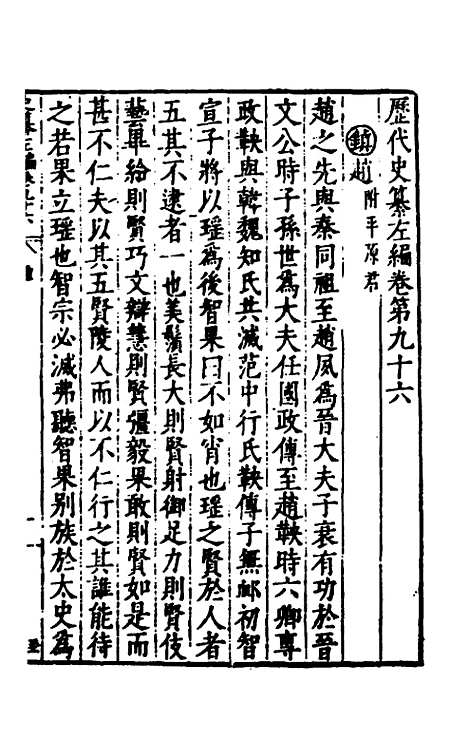 歷代史纂左編卷第九十六
鎮 趙 附平原君
趙之先與秦同祖至趙夙為晉大夫子衰有功於晉
文公時子孫世為大夫任國政傳至趙鞅時六卿專
政鞅與韓魏知氏共滅范中行氏鞅傳子無卹初智
宣子將以瑤為後智果曰不如宵也瑤之賢於人者
五其不逮者一也美鬚長大則賢射御足力則賢伎
藝畢給則賢巧文辯慧則賢彊毅果敢則賢如是而
甚不仁夫以其五賢陵人而以不仁行之其誰能待
之若果立瑤也智宗必滅弗聽智果別族於太史為